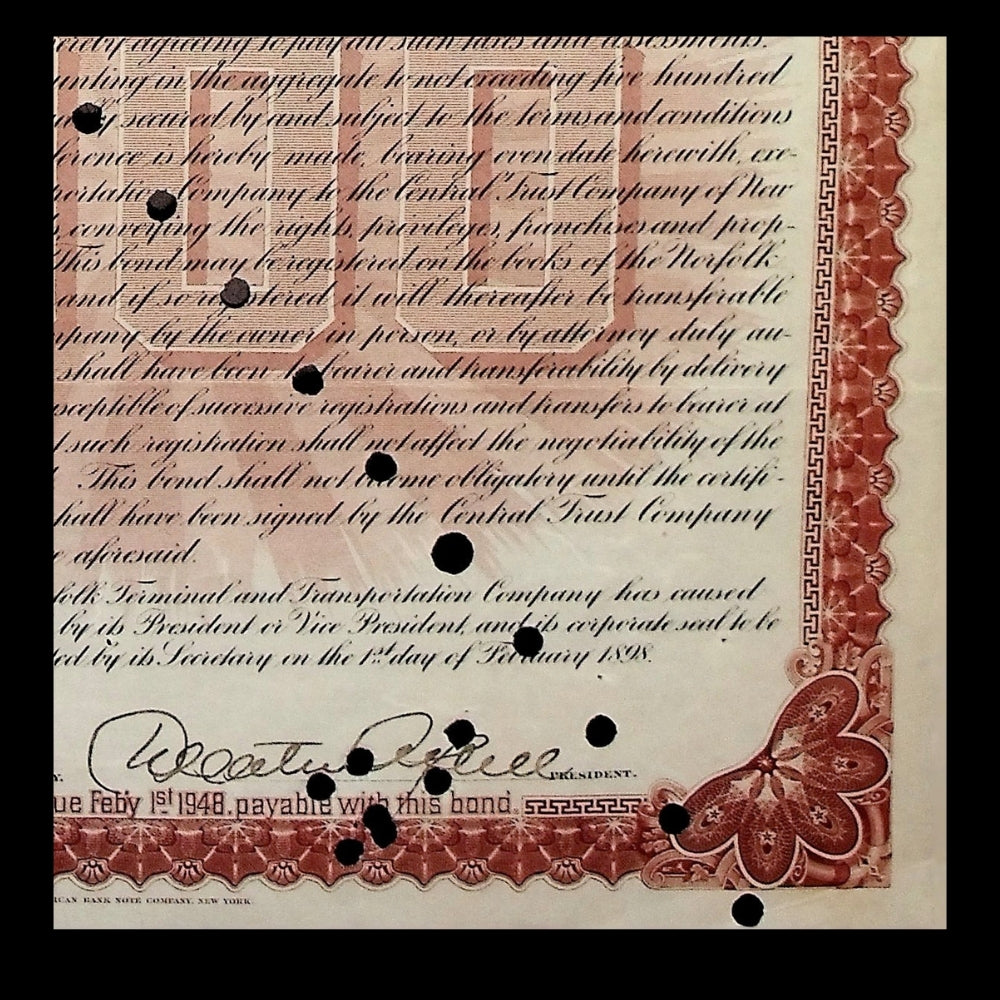 hereby agreeing to pay all such taxes and assessments.
unting in the aggregate to not exceeding five hundred
secured by and subject to the terms and conditions
ference is hereby made, bearing even date herewith, exe-
portation Company to the Central Trust Company of New
conveying the rights, privileges, franchises and prop-
This bond may be registered on the books of the Norfolk
and if so registered it will thereafter be transferable
pany by the owner in person, or by attorney duly au-
shall have been to bearer and transferability by delivery
sceptible of successive registrations and transfers to bearer at
such registration shall not affect the negotiability of the
This bond shall not become obligatory until the certifi-
hall have been signed by the Central Trust Company
e aforesaid.
folk Terminal and Transportation Company has caused
by its President or Vice President, and its corporate seal to be
ed by its Secretary on the 1st day of February 1898.
Y. PRESIDENT.
ue Feby 1st 1948. payable with this bond.
ICAN BANK NOTE COMPANY, NEW YORK.